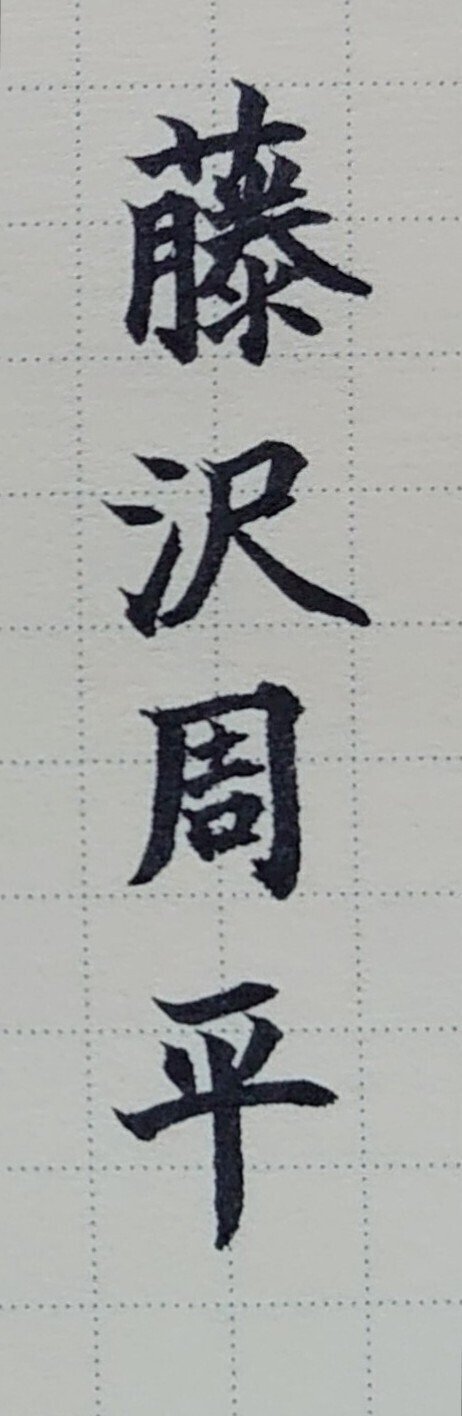 藤沢周平